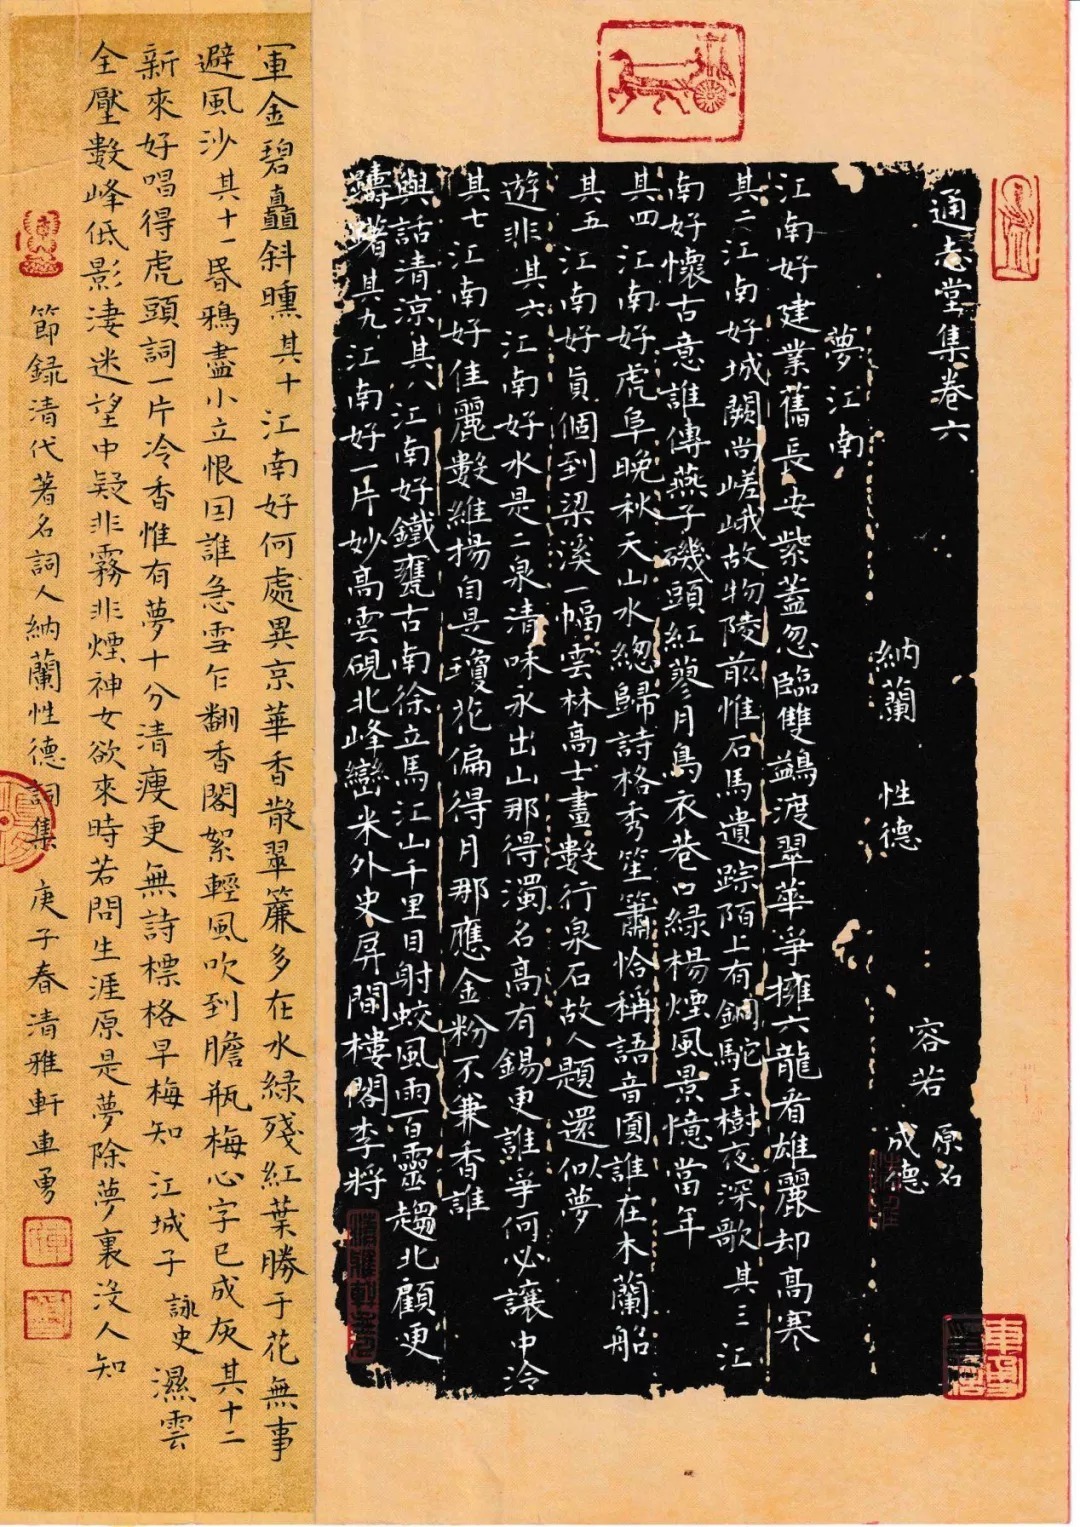 通志堂集卷六
納蘭 性德 容若 原名成德
夢江南
江南好建業舊長安紫蓋忽臨雙鷁渡翠華爭擁六龍看雄麗却高寒
其二江南好城闕尚嵯峨故物陵前惟石馬遺踪陌上有銅駝玉樹夜深歌其三江
南好懷古意誰傳燕子磯頭紅蓼月烏衣巷口綠楊煙風景憶當年
其四江南好虎阜晚秋天山水總歸詩格秀笙簫恰稱語音圓誰在木蘭船
其五江南好真個到梁溪一幅雲林高士畫數行泉石故人題還似夢
遊非其六江南好水是二泉清味永出山那得濁名高有錫更誰爭何必讓中泠
其七江南好佳麗數維揚自是瓊花偏得月那應金粉不兼香誰
與話清涼其八江南好鐵甕古南徐立馬江山千里目射蛟風雨百靈趨北顧更
躊躇其九江南好一片妙高雲硯北峰巒米外史屏間樓閣李將
軍金碧矗斜曛其十江南好何處異京華香散翠簾多在水綠殘紅葉勝于花無事
避風沙其十一昏鴉盡小立恨因誰急雪乍翻香閣絮輕風吹到膽瓶梅心字已成灰其十二
新來好唱得虎頭詞一片冷香惟有夢十分清瘦更無詩標格早梅知 江城子 詠史 濕雲
全壓數峰低影淒迷望中疑非霧非煙神女欲來時若問生涯原是夢除夢裏沒人知
節錄清代著名詞人納蘭性德詞集 庚子春清雅軒車勇